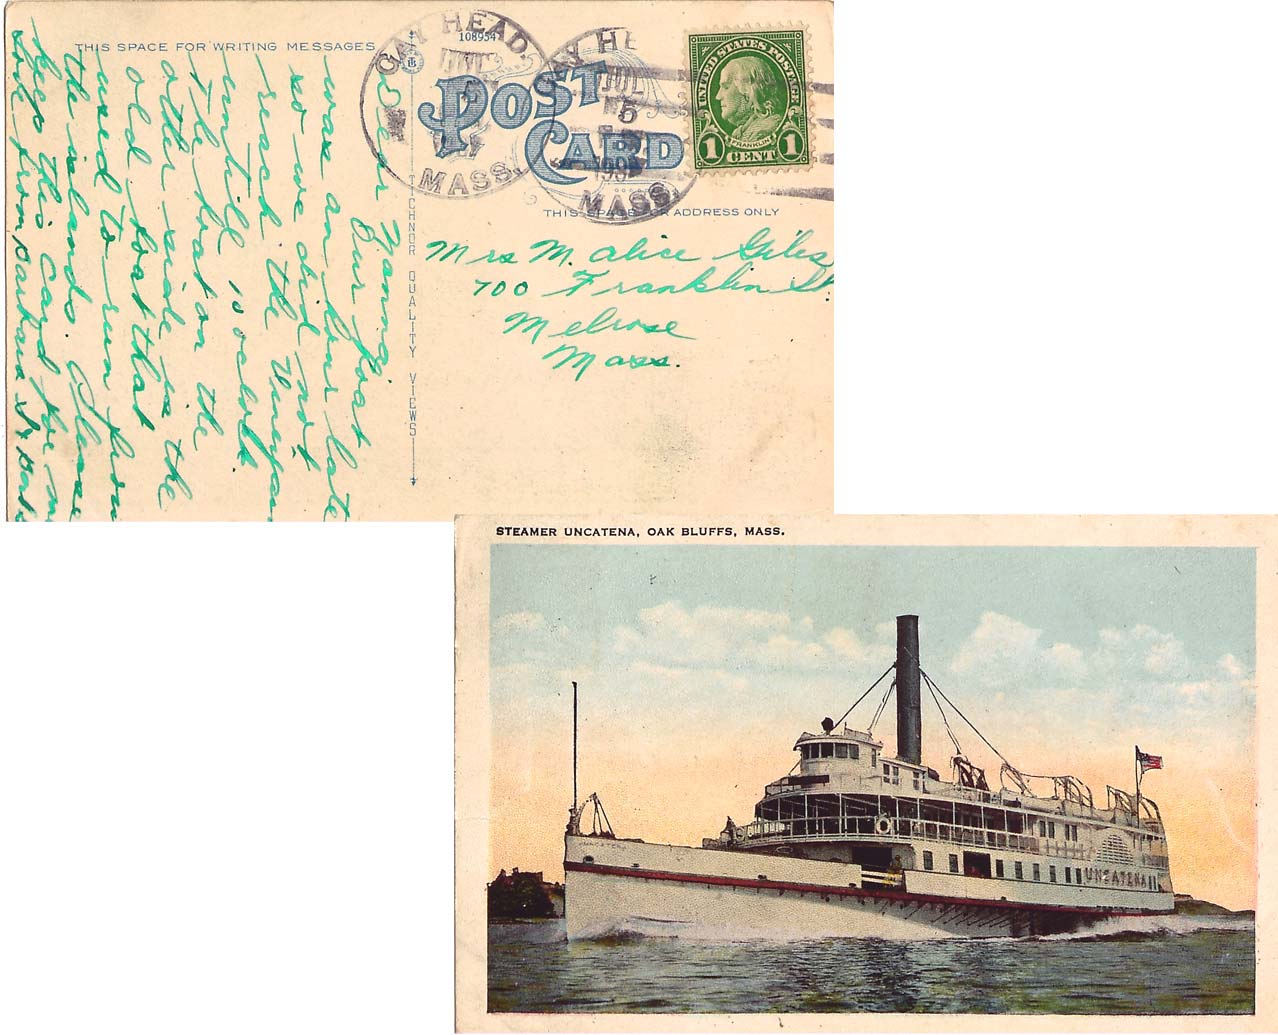 THIS SPACE FOR WRITING MESSAGES
108954
GAY HEAD.
JUL
MASS.
GAY HE
JUL
5
MASS.
POST
CARD
UNITED STATES POSTAGE
FRANKLIN
1 CENT 1
THIS SPACE FOR ADDRESS ONLY
TECHNOR QUALITY VIEWS
Mrs M. Alice Giles
700 Franklin St.
Melrose
Mass.
Dear Nanna:
Our boat
was an hour late
so we did not
reach the
until 10 oclock
The boat on the
other side is the
old boat that
used to run from
the islands. Please
keep this card for me
love from Barbara
STEAMER UNCATENA, OAK BLUFFS, MASS.
UNCATENA